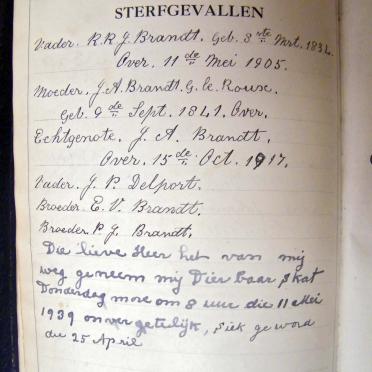 STERFGEVALLEN
Vader. R. R. J. Brandt. Geb. 3rde Mrt. 1834.
Over. 11de Mei 1905.
Moeder. J. A. Brandt. G. le Roux.
Geb. 9de Sept. 1841. Over.
Echtgenote. J. A. Brandt.
Over. 15de Oct. 1917.
Vader. J. P. Delport.
Broeder. E. V. Brandt.
Broeder. P. J. Brandt.
Die lieve Heer het van mij
weg geneem mij Dier baar skat
Donderdag more om 8 uur die 11 Mei
1939 onver getelijk, siek ge word
die 25 April